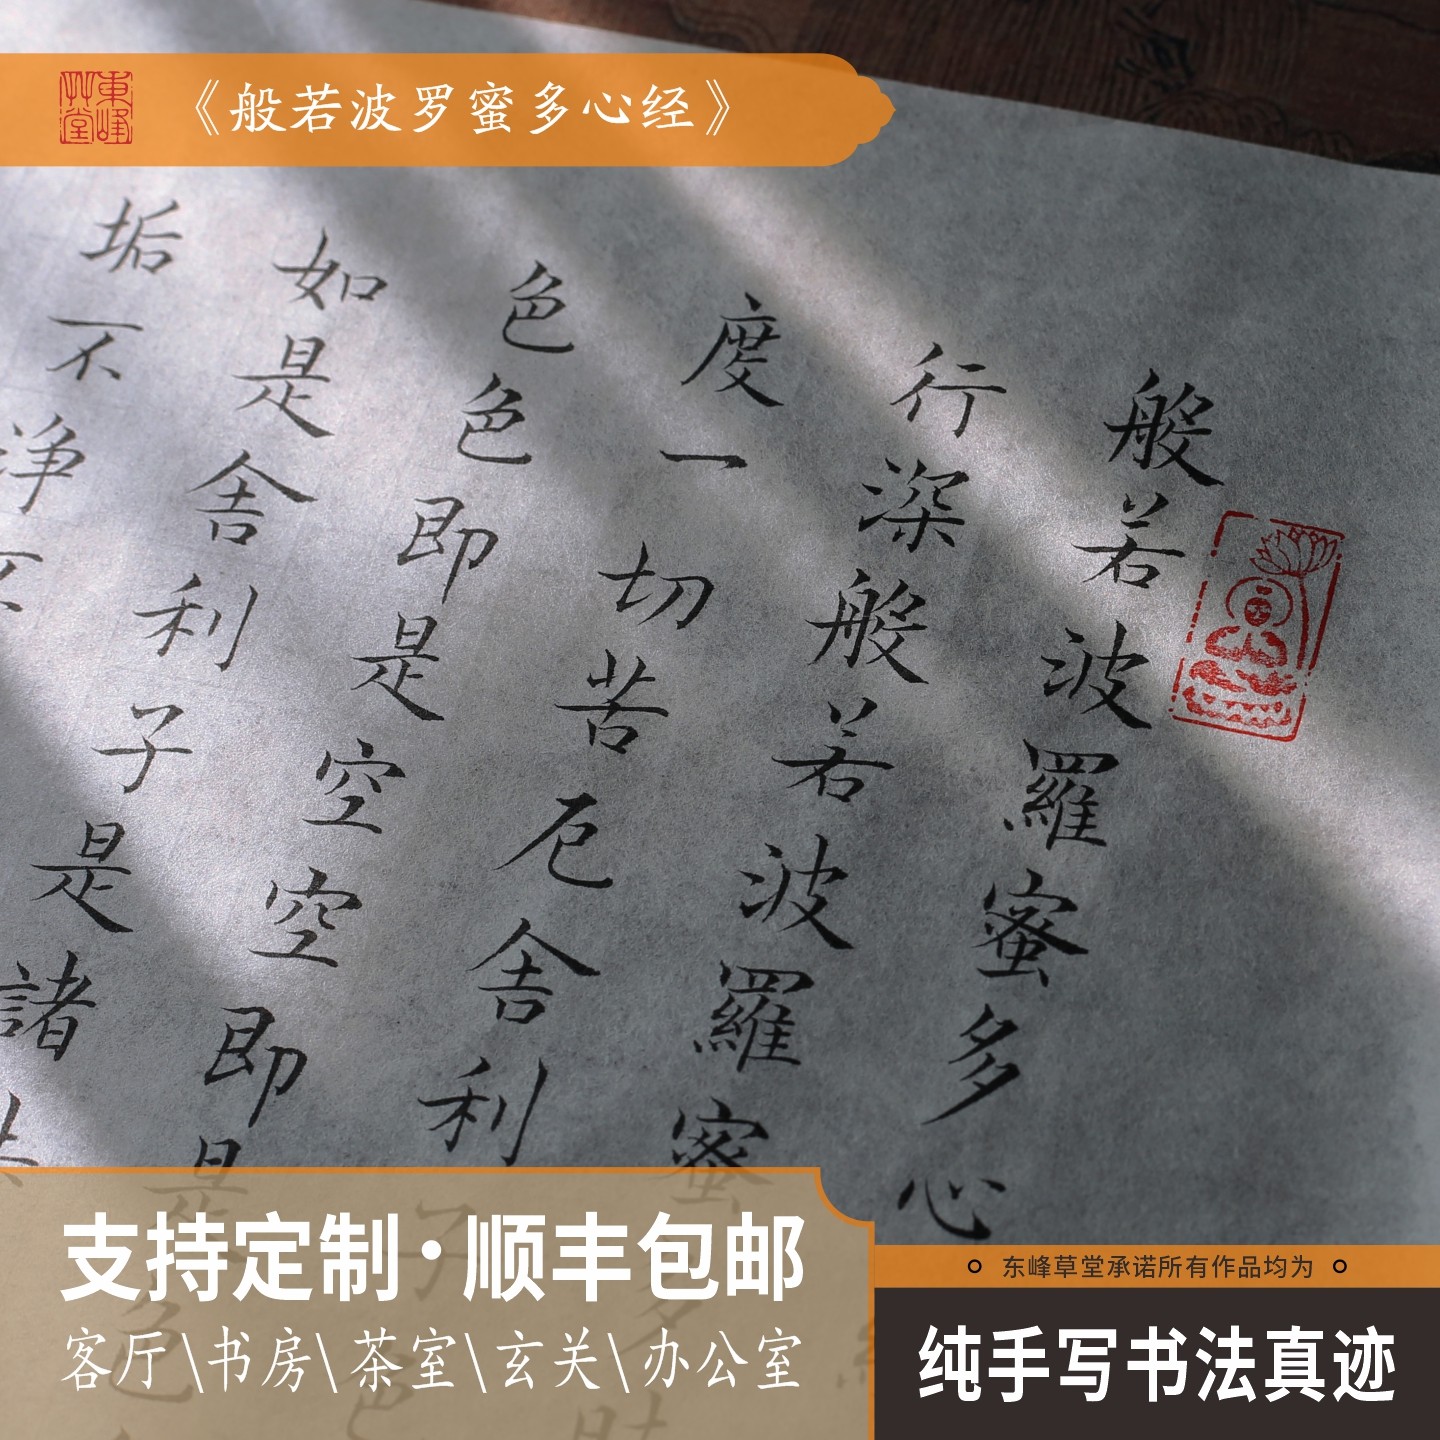 東峰
艸堂
《般若波罗蜜多心经》
般若波羅蜜多心
行深般若波羅蜜多
度一切苦厄舍利子色
色色即是空空即是色
如是舍利子是諸
垢不净不
支持定制·顺丰包邮
客厅\书房\茶室\玄关\办公室
东峰草堂承诺所有作品均为
纯手写书法真迹